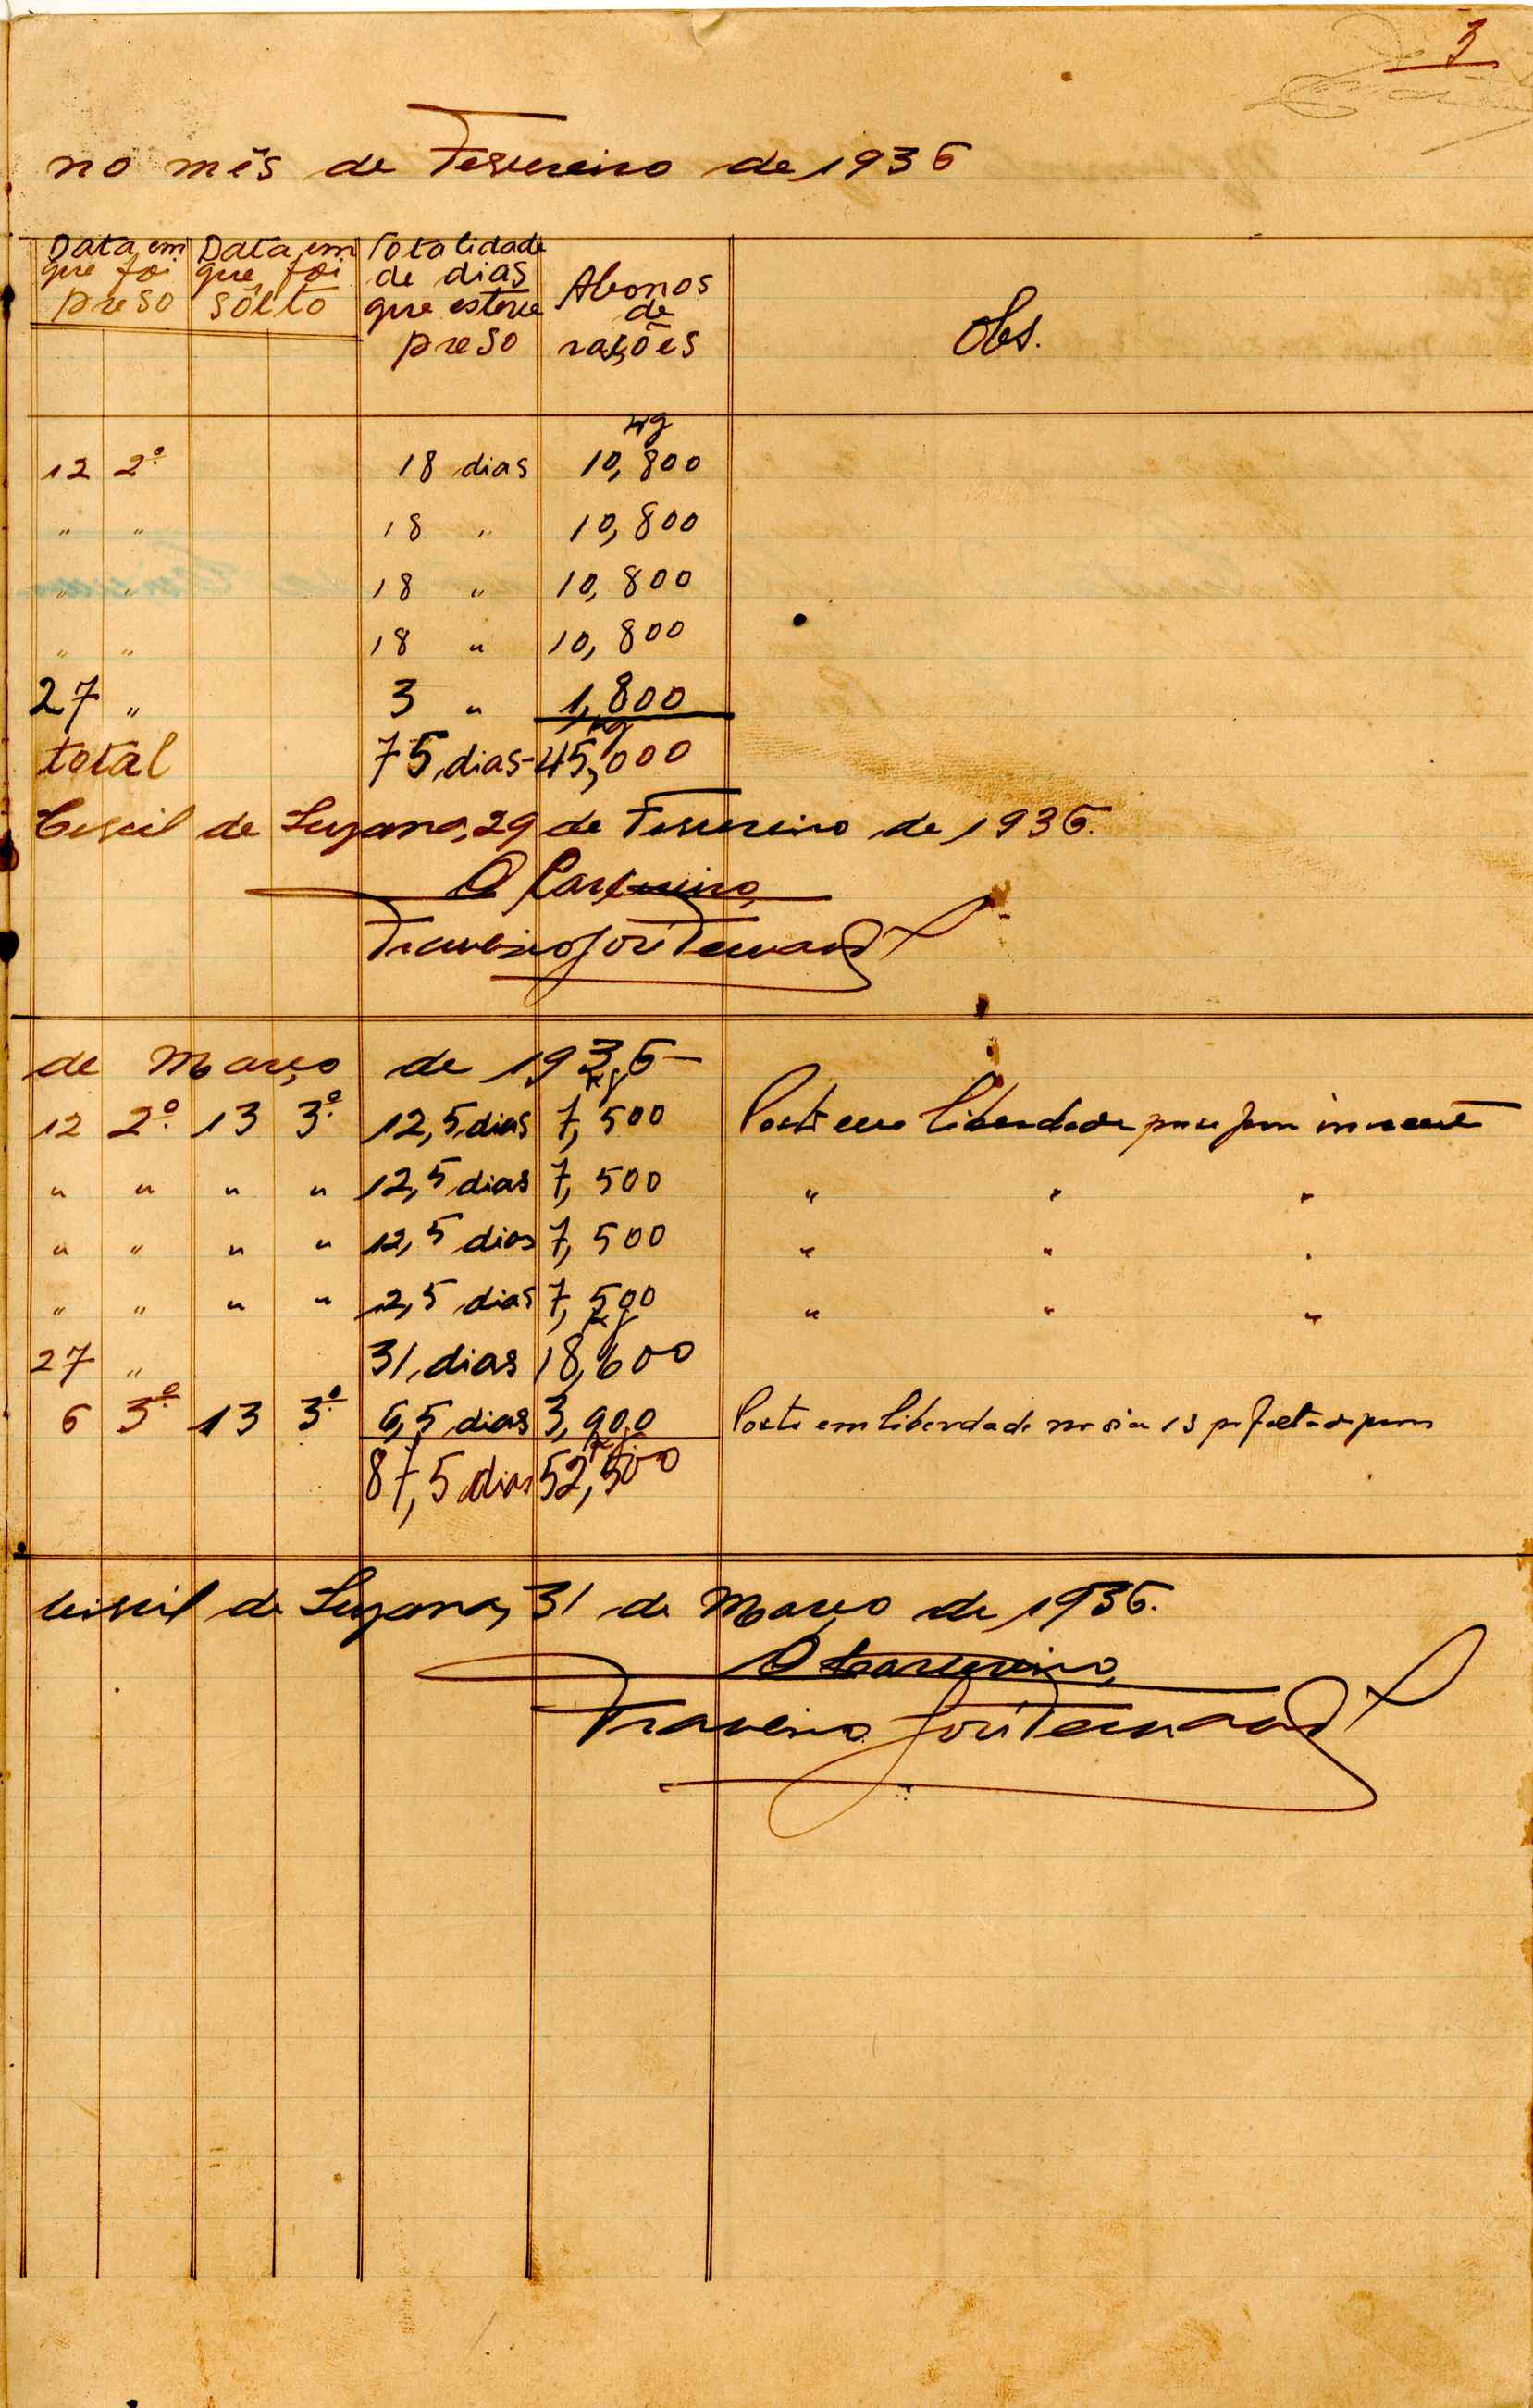 3
no mês de Fevereiro de 1936
Data em que foi preso | Data em que foi sôlto | Totalidade de dias que esteve preso | Abonos de rações | Obs.
kg
12 2º 18 dias 10,800
" " 18 " 10,800
" " 18 " 10,800
" " 18 " 10,800
27 " 3 " 1,800
kg
total 75 dias - 45,000
de 29 de Fevereiro de 1936.
O Carcereiro,
José Fernand
de Março de 1936
kg
12 2º 13 3º 12,5 dias 7,500 em liberdade
" " " " 12,5 dias 7,500 " " "
" " " " 12,5 dias 7,500 " " "
" " " " 12,5 dias 7,500 " " "
kg
27 " 31 dias 18,600
6 3º 13 3º 6,5 dias 3,900 em liberdade no dia 13
kg
87,5 dias 52,500
de 31 de Março de 1936.
O Carcereiro,
José Fernand